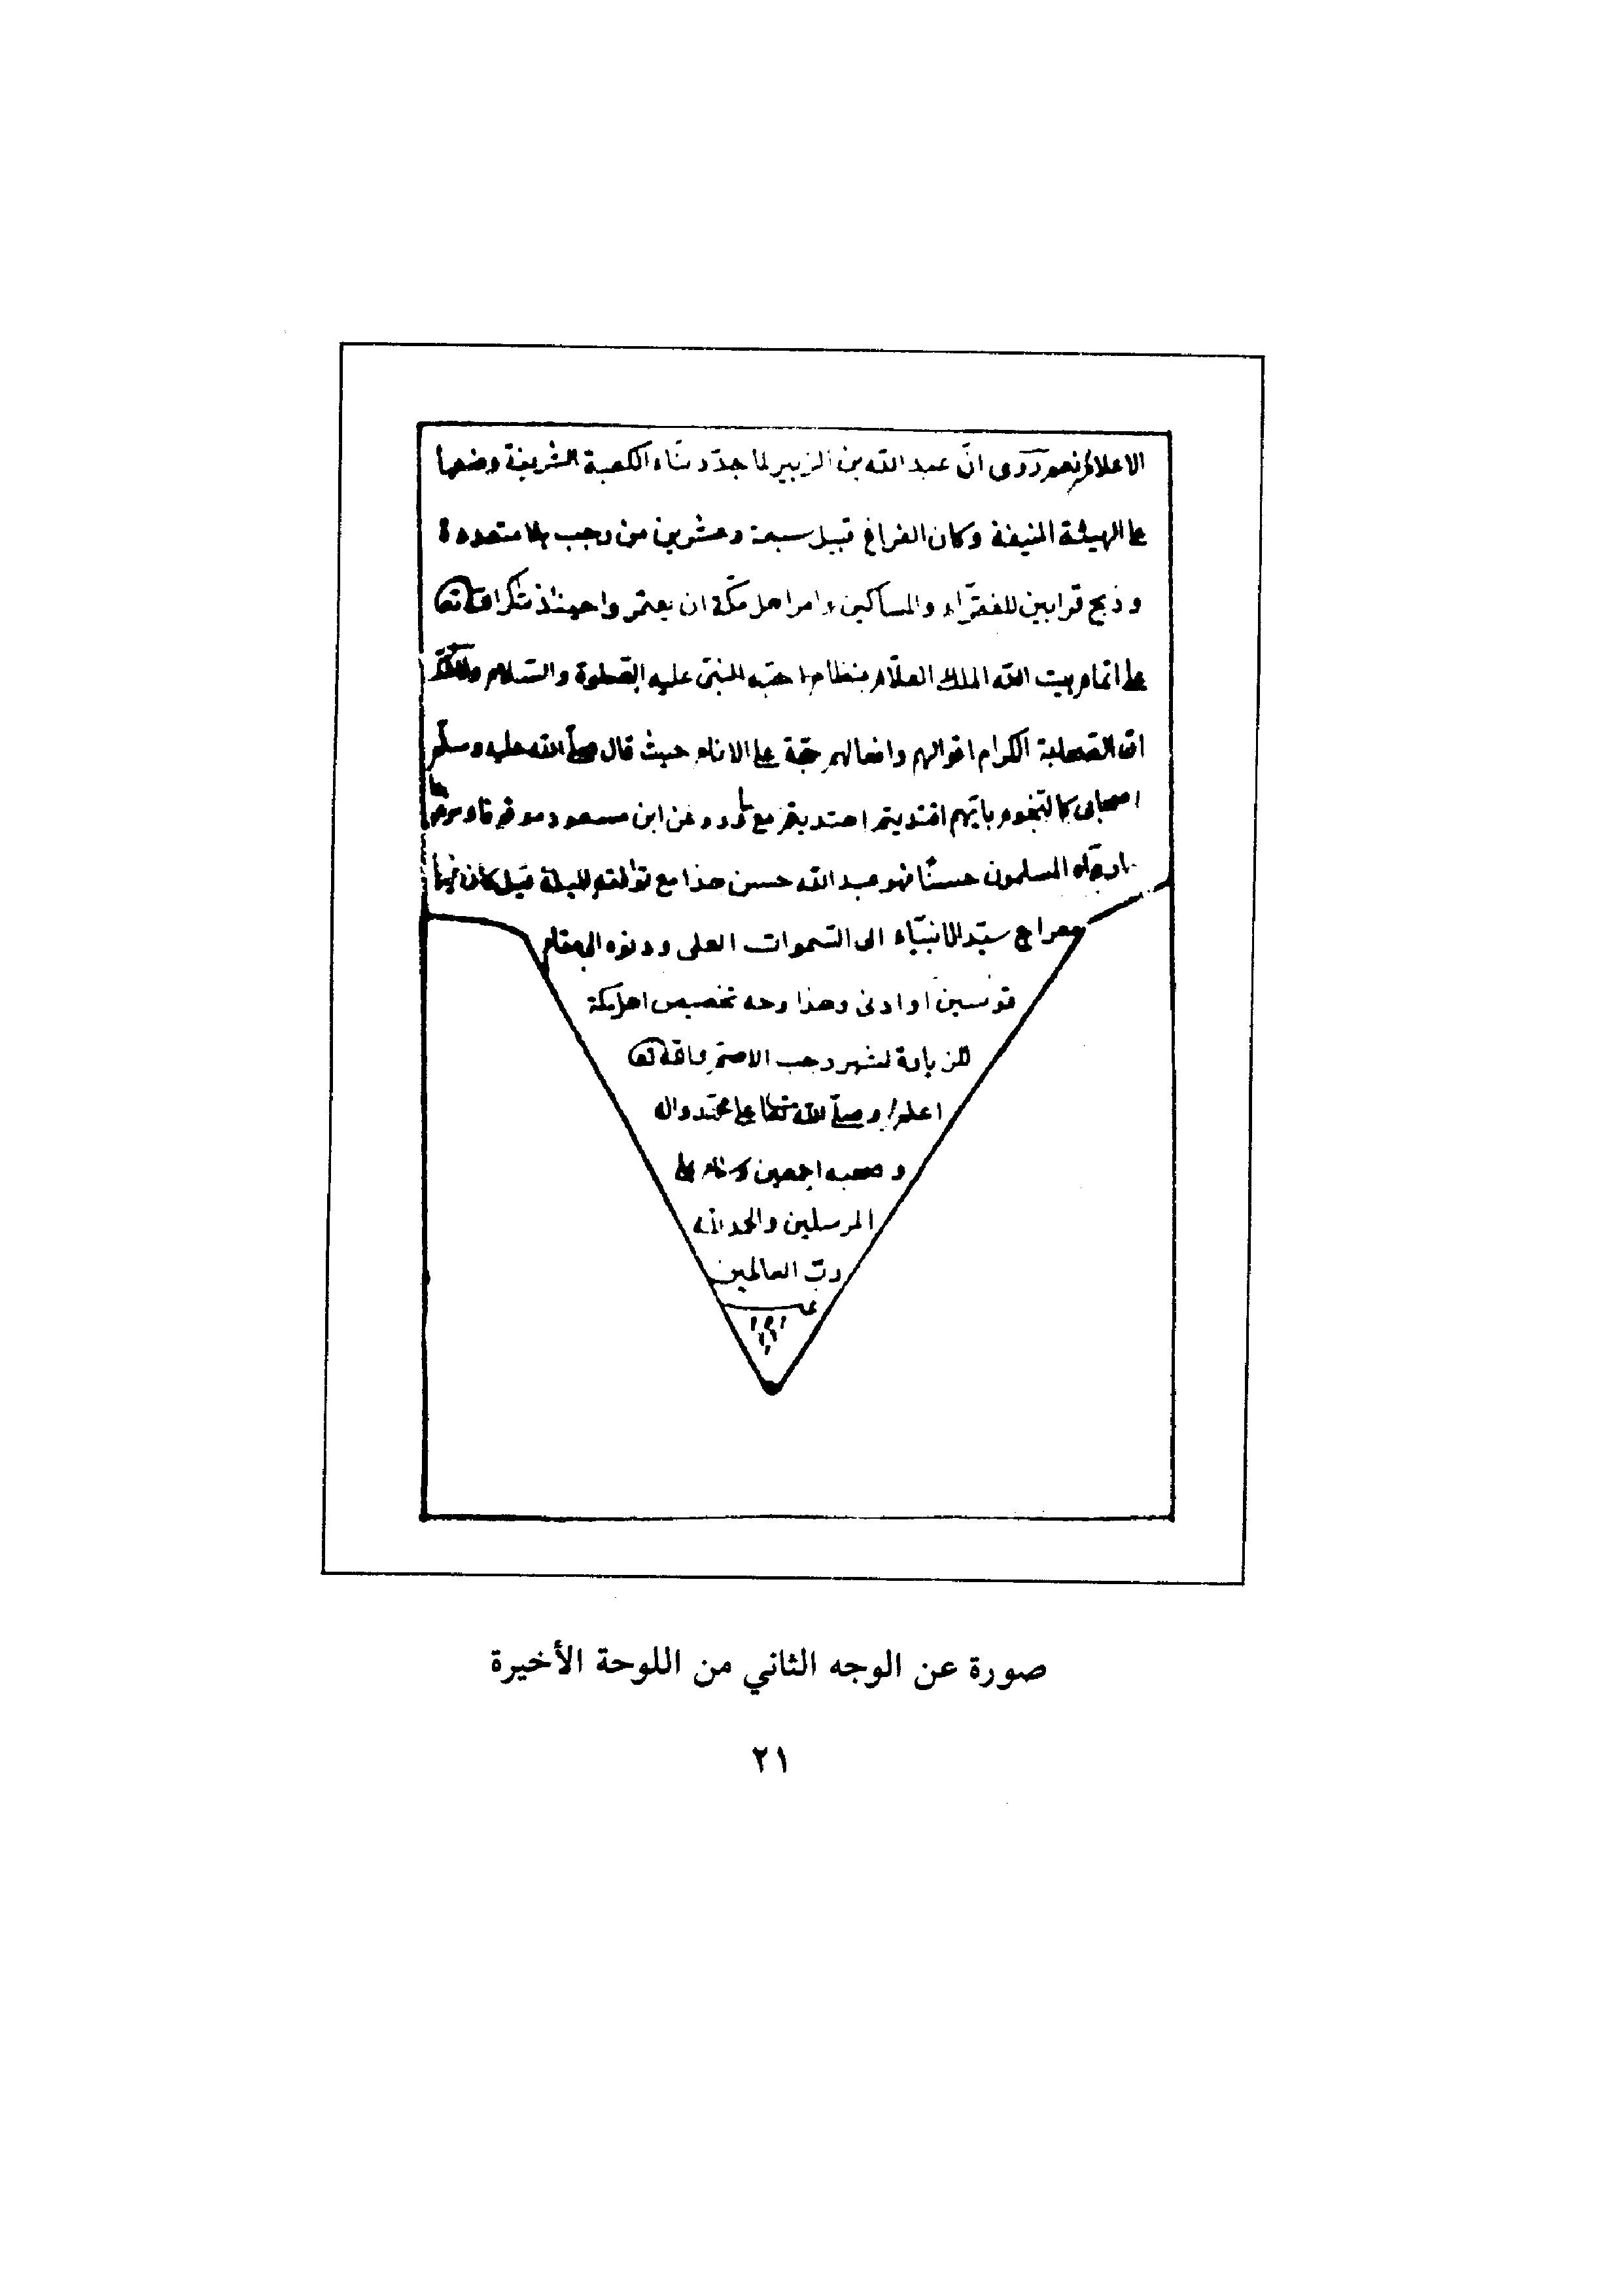 الاعلام نعم روى انّ عبد الله بن الزبير لما جدّد بناء الكعبة الشريفة وضعها
على الهيئة المنيفة وكان الفراغ قبيل سبعة وعشرين من رجب متعددة
وذبح قرابين للفقرآء والمساكين وامر اهل مكّة ان يعتمروا حينئذ شكرا لله تعا
على اتمام بيت الله الملك العلّام احبّه النبىّ عليه الصّلوة والسّلام
انّ الصّحابة الكرام اقوالهم وافعالهم حجّة على الانام حيث قال صلّى الله عليه وسلّم
اصحابى كالنّجوم بايّهم اقتديتم اهتديتم مع ورد عن ابن مسعود موقوفا ومرفوعا
ما رآه المسلمون حسنًا فهو عند الله حسن هذا مع قيل كان فيها
معراج سيّد الانبيآء الى السّموات العلى ودنوه الى مقام
قوسين او ادنى وهذا وجه تخصيص اهل مكة
للزيادة لشهر رجب الاصمّ والله تعا
اعلم وصلّى الله تعا على محمّد واله
وصحبه اجمعين وسلام على
المرسلين والحمد لله
ربّ العالمين
صورة عن الوجه الثاني من اللوحة الأخيرة
٢١